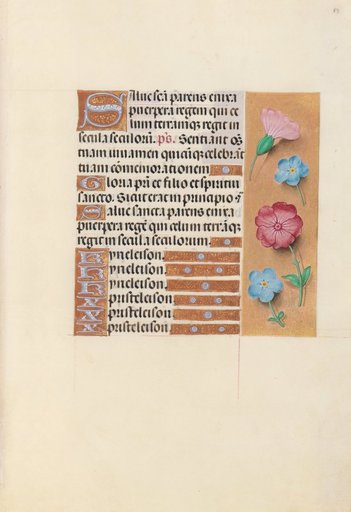 Salue sc̄a parens enixa
puerpera regem qui ce
lum terramq3 regit in
secula seculorū. p̄s. Sentiāt oēs
tuum iuuamen quicūq3 celebrāt
tuam cōmemorationem
Gloria pr̄i et filio et spiritui
sancto. Sicut erat in principio
Salue sancta parens enixa
puerpera regē qui celum terrāq3
regit in secula seculorum.
Kyrieleison.
Kyrieleison
Kyrieleison
Xpisteleison
Xpisteleison
Xpisteleison